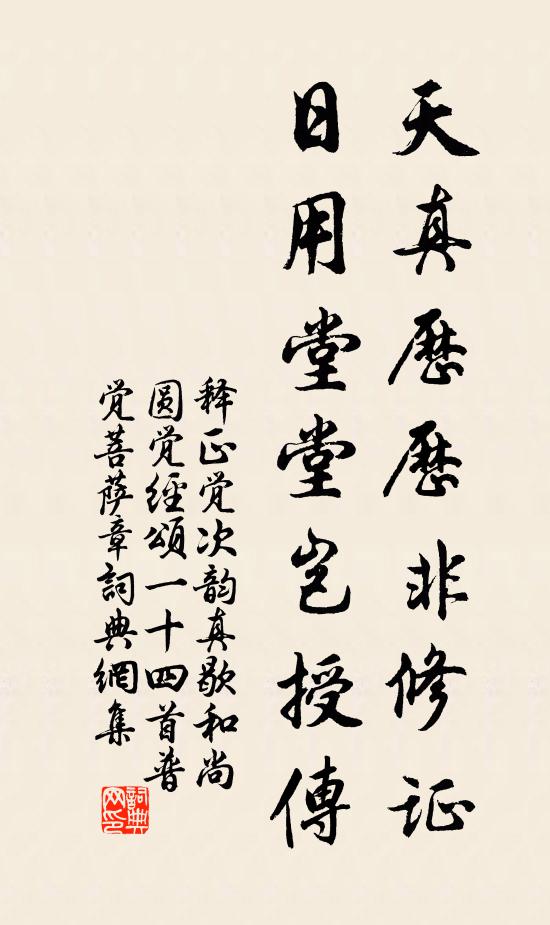 天真歷歷非修证
日用堂堂岂授傳
释正觉次韵真歇和尚
圆觉經頌一十四首普
觉菩萨章詞典網集
詞典网印